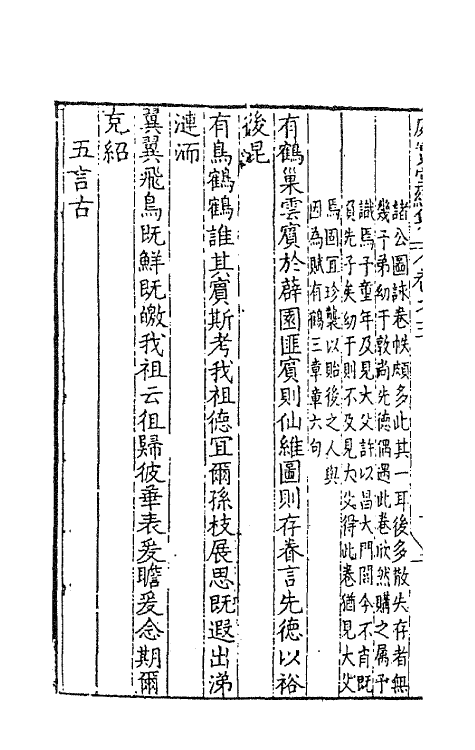 諸公圖詠卷帙頗多此其一耳後多散失存者無
幾予弟幼于敦尚先德偶遇此卷欣然購之属予
識焉予童年及見大父許以昌大門閭今不肖既
負先子矣幼于則不及見大父得此卷猶見大父
焉固宜珍襲以貽後之人與
因為賦有鶴三章章六句
有鶴巢雲賓於薜園匪賓則仙維圖則存眷言先德以裕
後昆
有鳥鶴鶴誰其賓斯考我祖德宜爾孫枝展思既遐出涕
漣洏
翼翼飛鳥既鮮既皦我祖云徂歸彼華表爰瞻爰念期爾
克紹
五言古